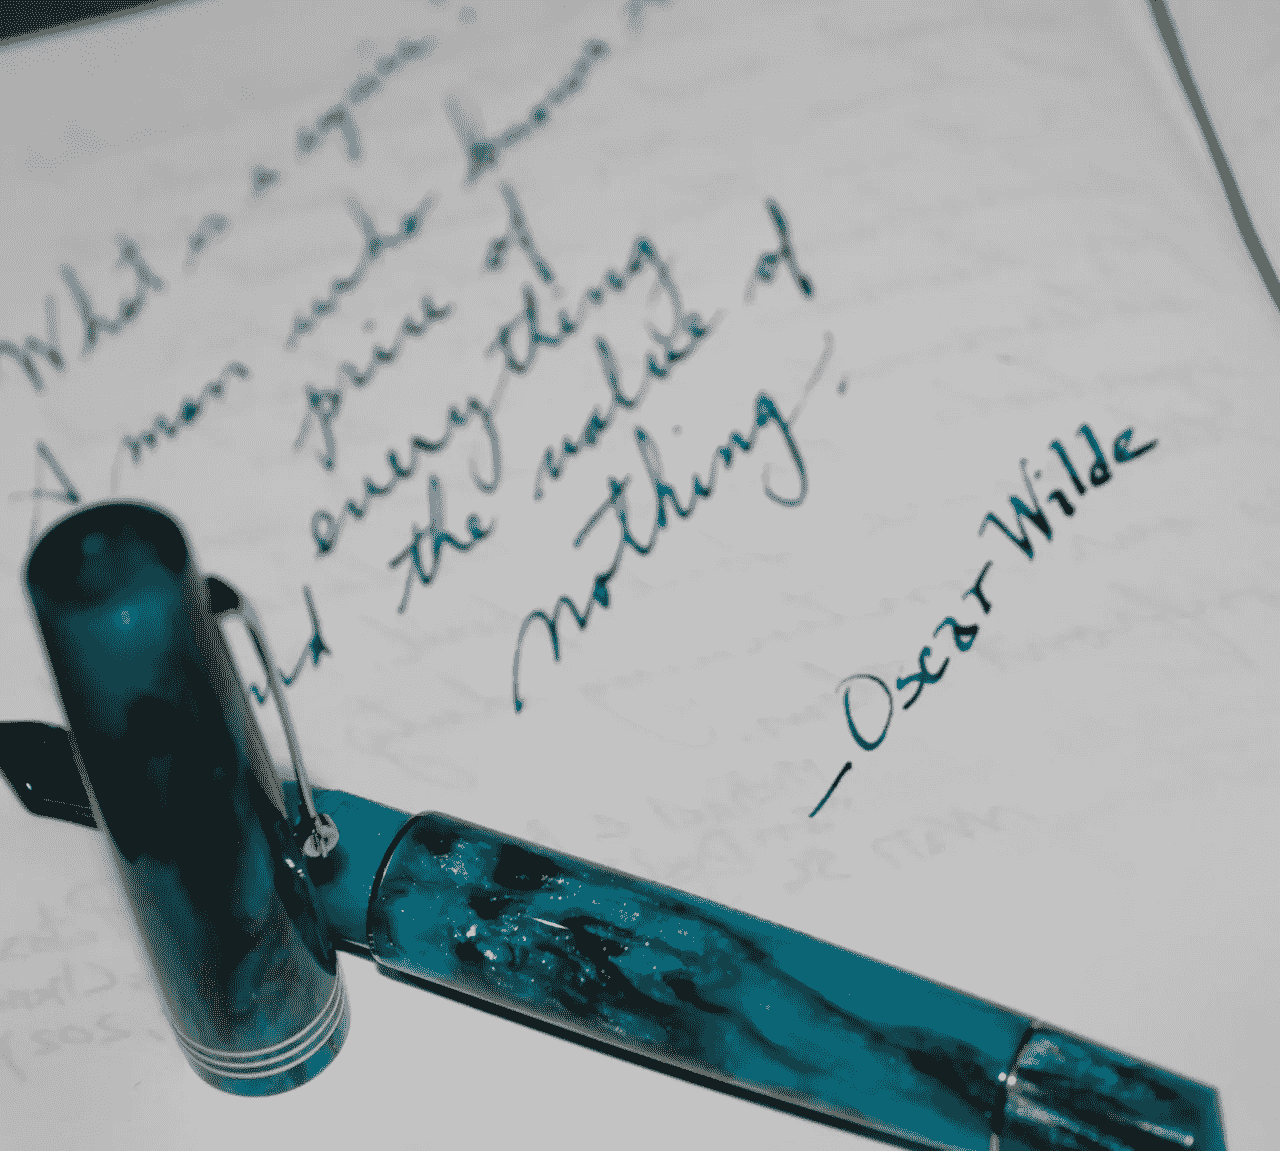 What is a cynic?
A man who knows
price of
everything
and the value of
nothing.
— Oscar Wilde